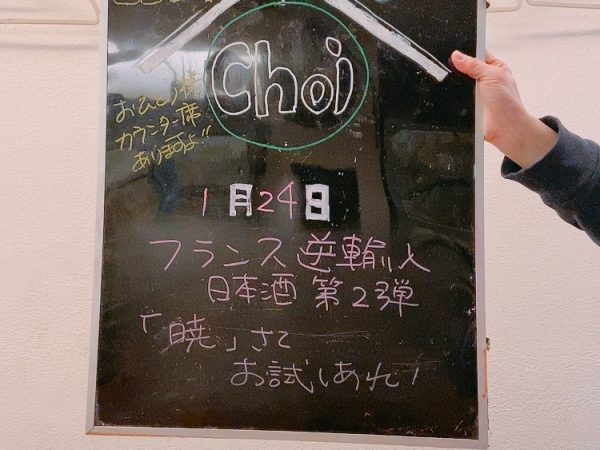 Choi
おひとり様
カウンター席
ありますよ!!
1月24日
フランス逆輸入
日本酒 第2弾
「暁」さて
お試しあれ!